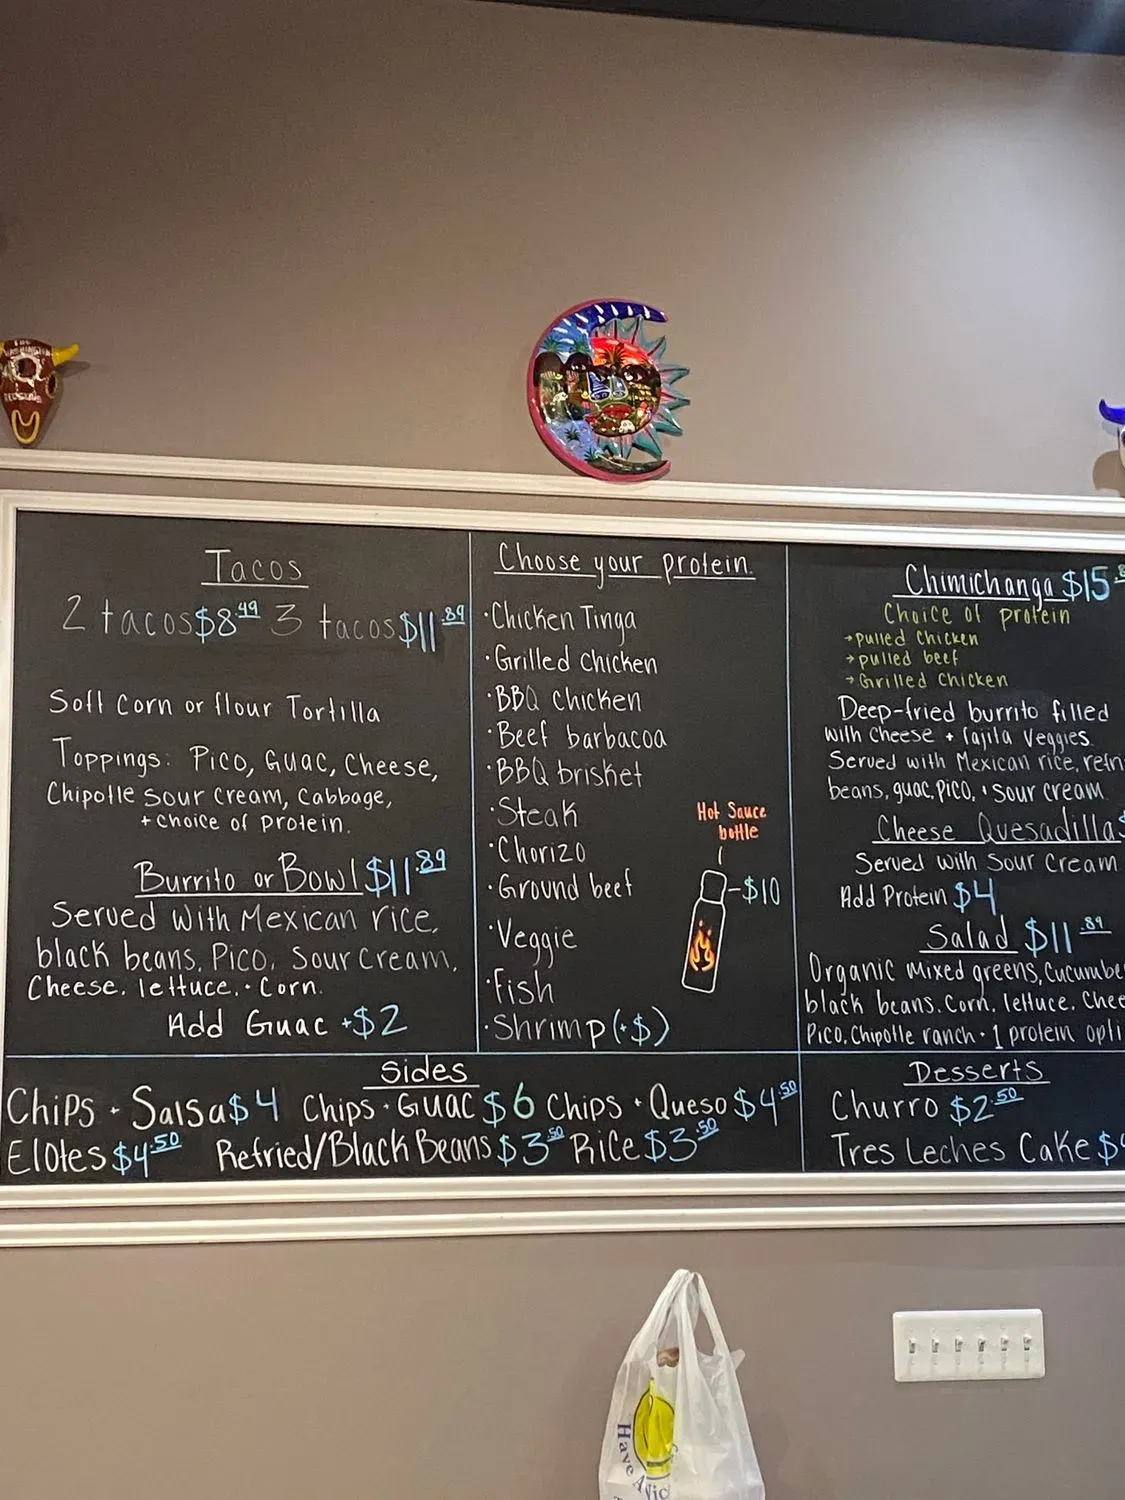 Tacos
2 tacos $8.49 3 tacos $11.89
Soft Corn or flour Tortilla
Toppings: Pico, Guac, Cheese,
Chipotle Sour Cream, Cabbage,
+ choice of protein.
Burrito or Bowl $11.89
Served with Mexican rice,
black beans, Pico, Sour Cream,
Cheese, lettuce, + Corn.
Add Guac +$2
Choose your protein
·Chicken Tinga
·Grilled Chicken
·BBQ Chicken
·Beef barbacoa
·BBQ brisket
·Steak
·Chorizo
·Ground beef
·Veggie
·Fish
·Shrimp (+$)
Hot Sauce
bottle
-$10
Chimichanga $15
Choice of protein
→pulled Chicken
→pulled beef
→Grilled Chicken
Deep-fried burrito filled
with Cheese + fajita Veggies.
Served with Mexican rice, refri
beans, guac, pico, + sour cream
Cheese Quesadilla $
Served with Sour Cream
Add Protein $4
Salad $11.89
Organic Mixed greens, Cucumbe
black beans, Corn, lettuce, Chee
Pico, Chipotle ranch + 1 protein opti
Sides
Chips + Salsa $4 Chips + Guac $6 Chips + Queso $4.50
Elotes $4.50 Refried/Black Beans $3.50 Rice $3.50
Desserts
Churro $2.50
Tres Leches Cake $
Have A Nic